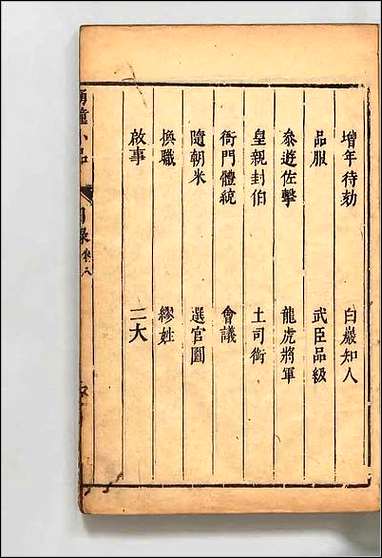 增年待劾 白巖知人
品服 武臣品級
叅遊佐擊 龍虎將軍
皇親封伯 土司銜
衙門體統 會議
隨朝米 選官圖
換職 繆姓
啟事 二大
小品 目錄 卷八